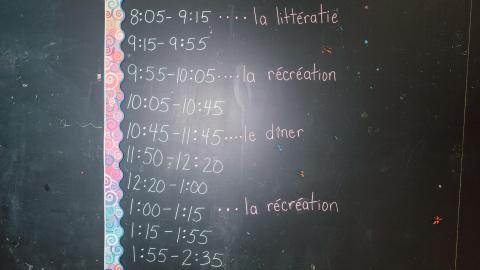 8:05-9:15 .... la littératie
9:15-9:55
9:55-10:05.... la récréation
10:05-10:45
10:45-11:45.... le dîner
11:50-12:20
12:20-1:00
1:00-1:15 ... la récréation
1:15-1:55
1:55-2:35